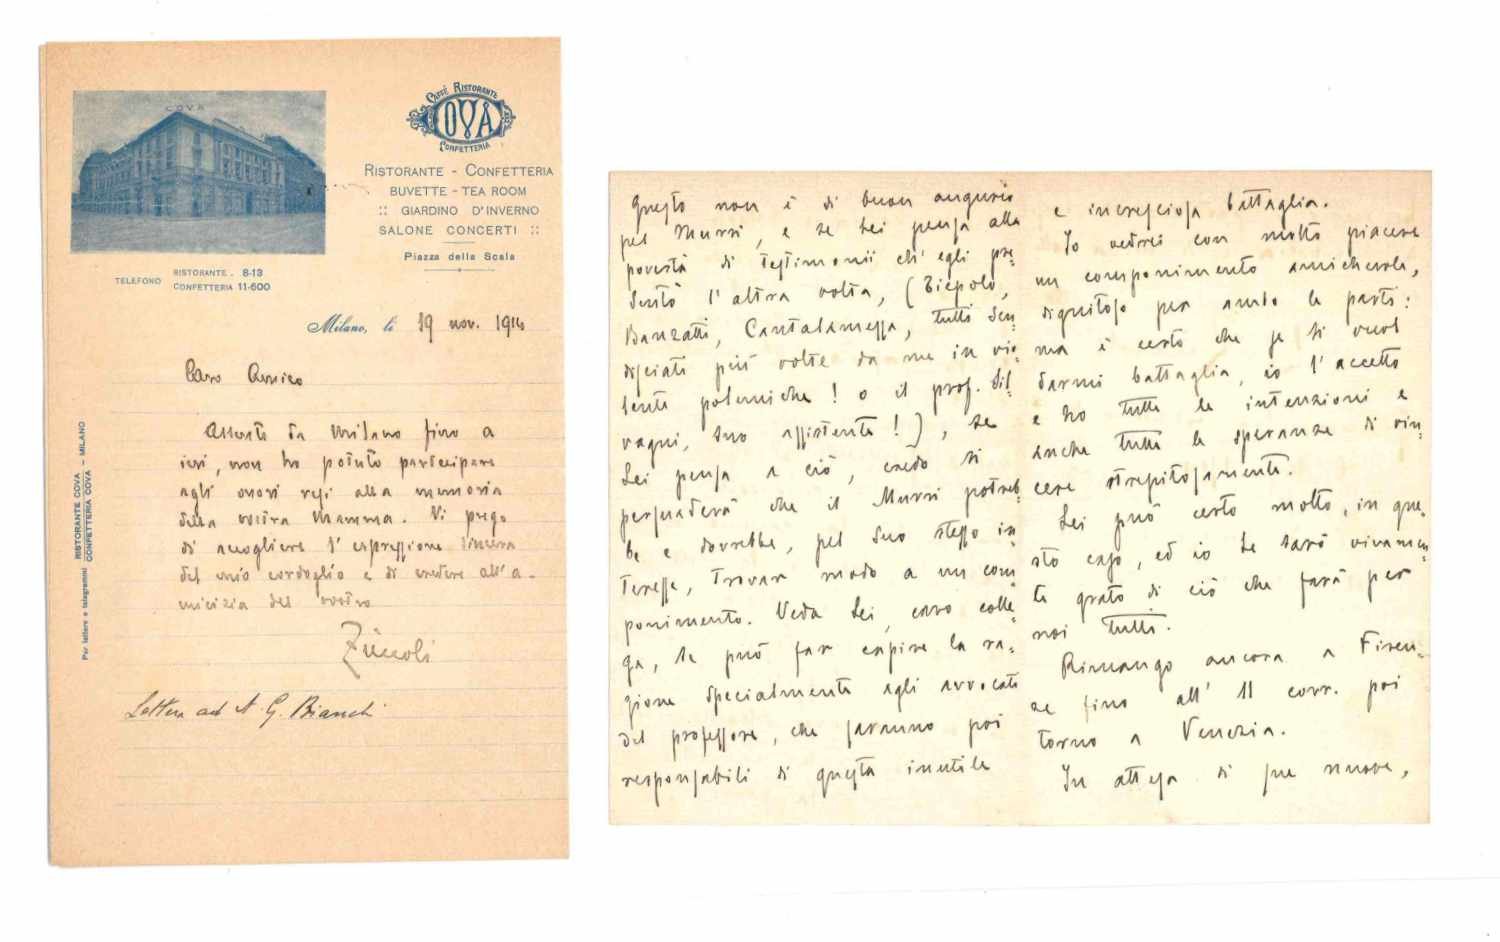 COVA
CAFFÈ RISTORANTE
COVA
CONFETTERIA
RISTORANTE - CONFETTERIA
BUVETTE - TEA ROOM
:: GIARDINO D'INVERNO
SALONE CONCERTI ::
Piazza della Scala
TELEFONO RISTORANTE . 8-13
CONFETTERIA 11-600
Milano, li 19 nov. 1914
Caro Amico
Assente da Milano fino a
ieri, non ho potuto partecipare
agli onori resi alla memoria
della vostra Mamma. Vi prego
di accogliere l'espressione sincera
del mio cordoglio e di credere all'a-
micizia del vostro
Zuccoli
Lettera ad A. G. Bianchi
Per lettere e telegrammi RISTORANTE COVA - MILANO
CONFETTERIA COVA - MILANO
Questo non è di buon augurio
pel Murri, e se Lei pensa alla
povertà di testimonii ch'egli pre-
sentò l'altra volta, (Tiepolo,
Banzatti, Cantalamessa, tutti scu-
disciati più volte da me in vio-
lente polemiche! o il prof. Sil-
vagni, suo assistente!), se
Lei pensa a ciò, credo si
persuaderà che il Murri potreb-
be e dovrebbe, pel suo stesso in-
teresse, trovar modo a un com-
ponimento. Veda Lei, caro colle-
ga, se può far capire la ra-
gione specialmente agli avvocati
del professore, che saranno poi
responsabili di questa inutile
e incresciosa battaglia.
Io vedrei con molto piacere
un componimento amichevole,
dignitoso per ambo le parti:
ma è certo che se si vuol
darmi battaglia, io l'accetto
e ho tutte le intenzioni e
anche tutte le speranze di vin-
cere strepitosamente.
Lei può certo molto, in que-
sto caso, ed io Le sarò vivamen-
te grato di ciò che farà per
noi tutti.
Rimango ancora a Firen-
ze fino all'11 corr. poi
torno a Venezia.
In attesa di sue nuove,